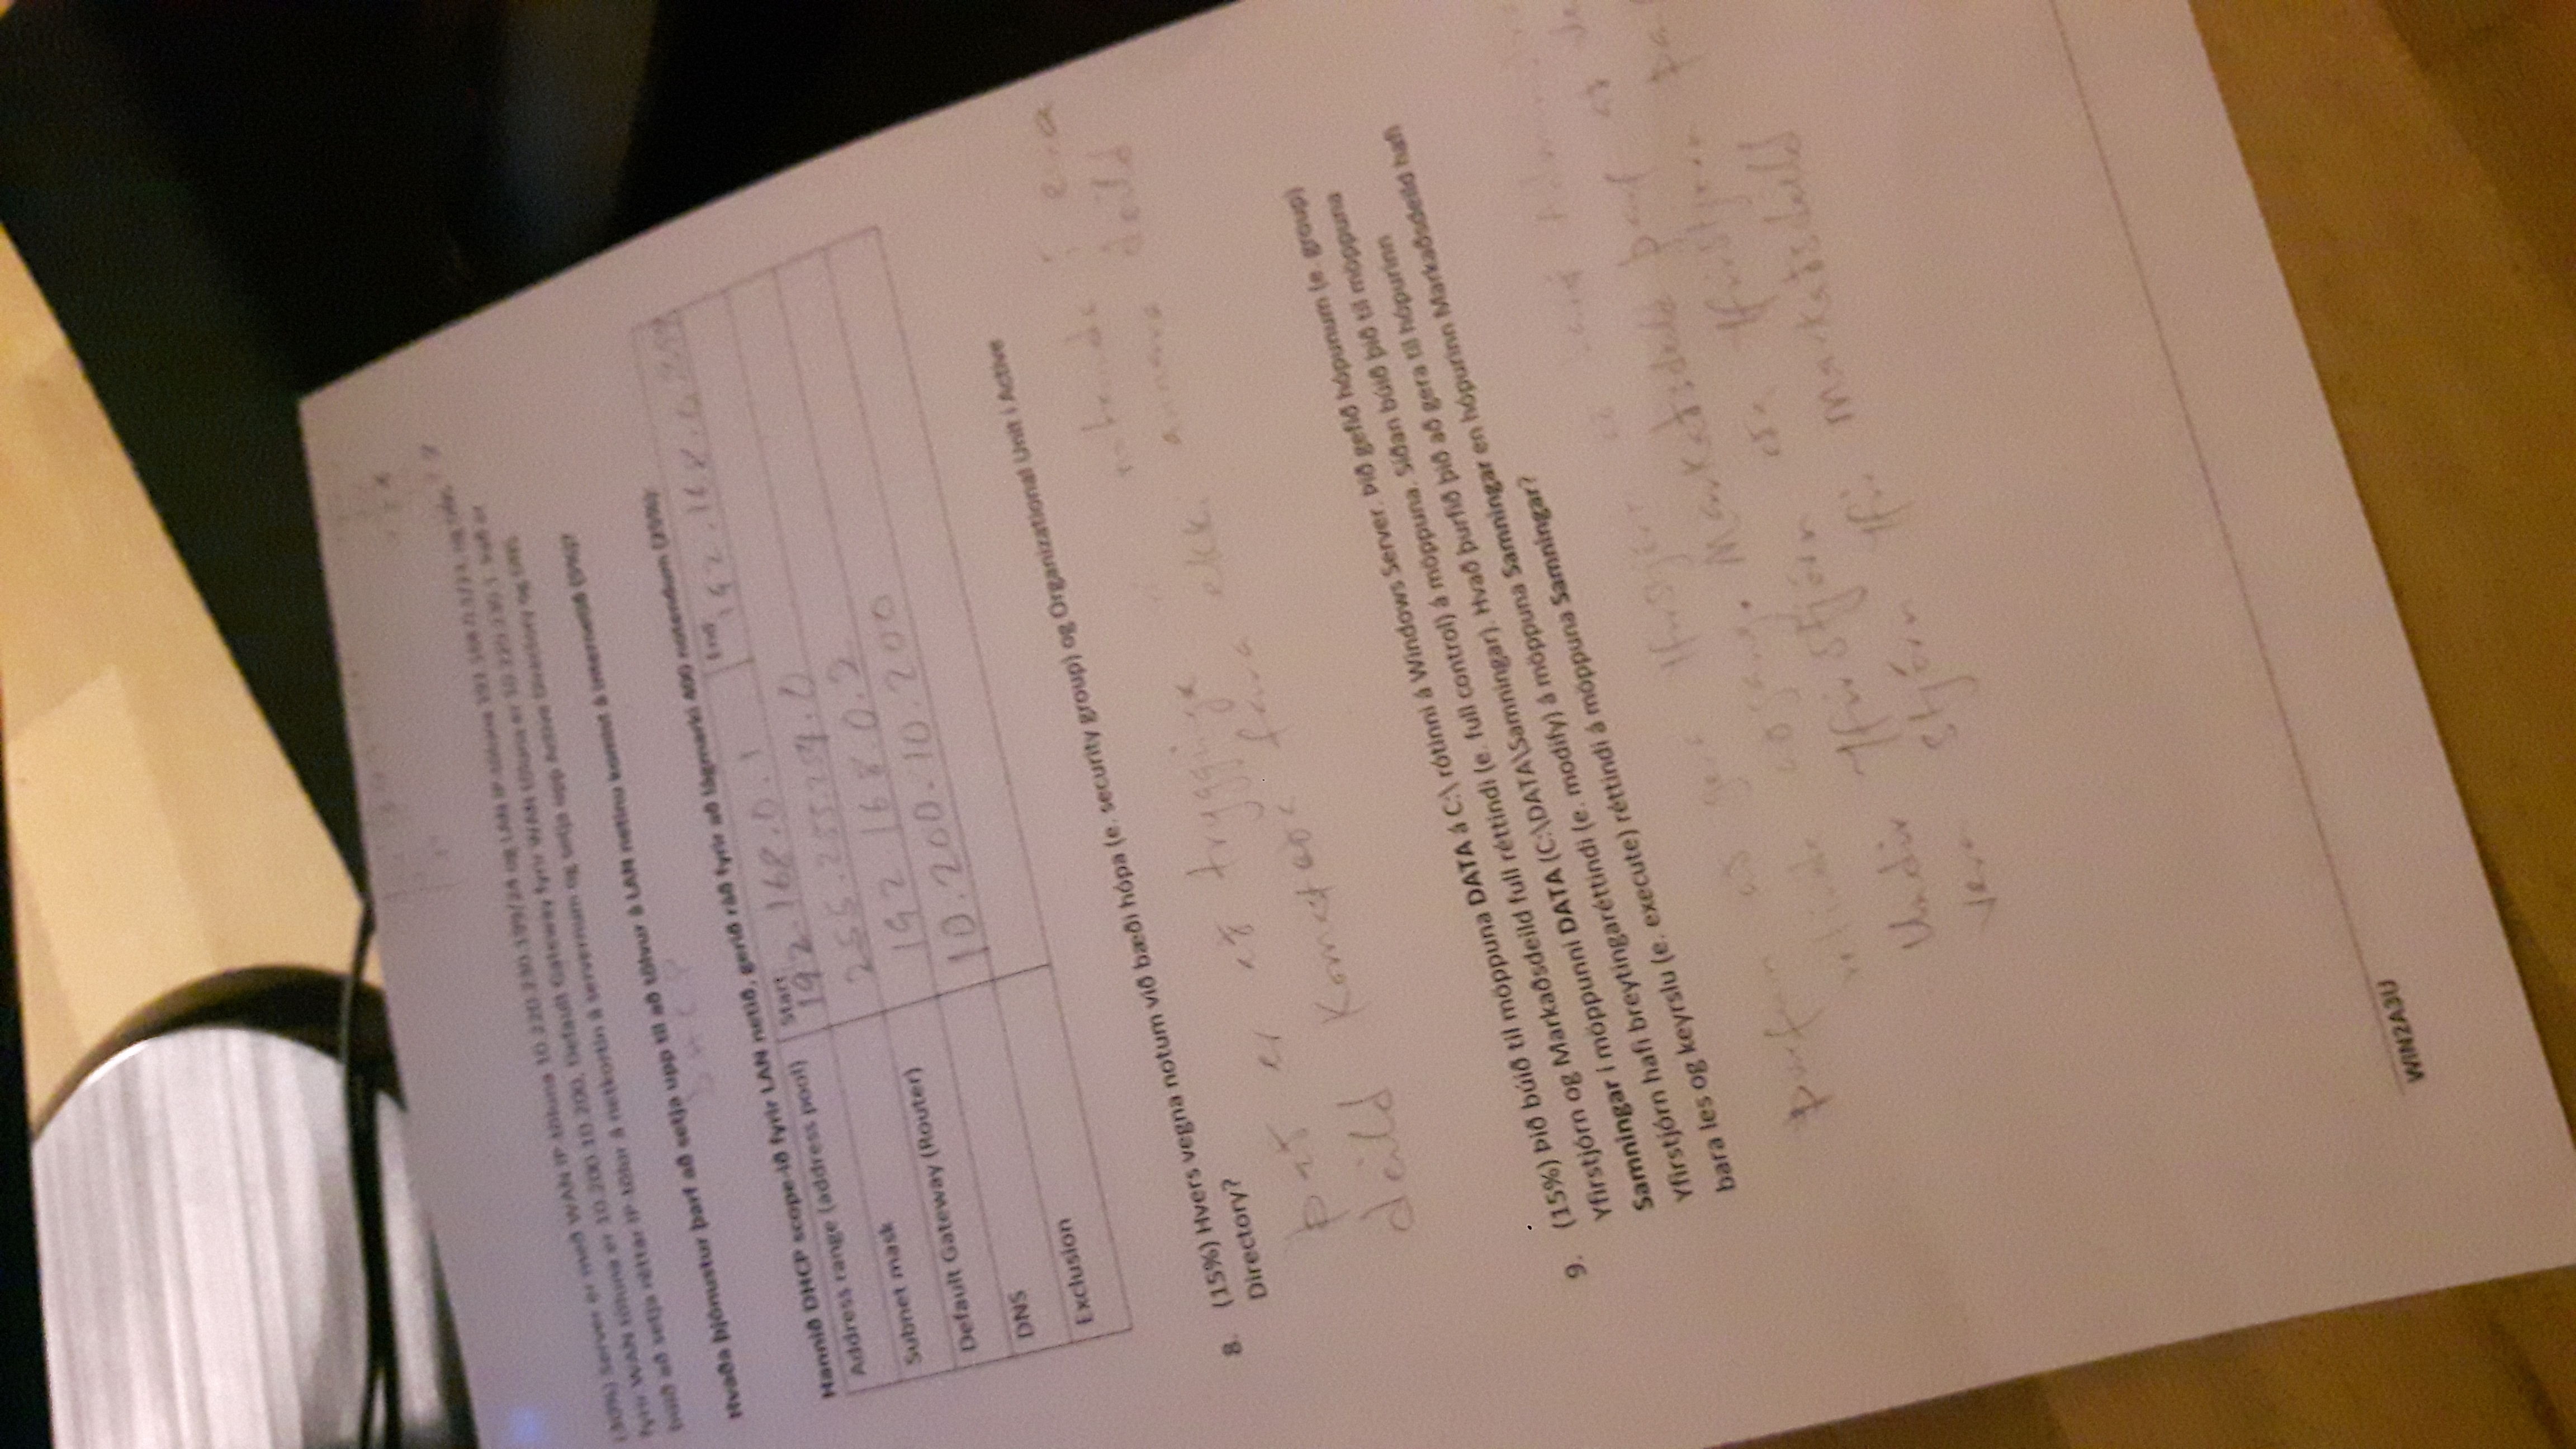 (30%) Server er með WAN IP-töluna 10.220.230.199/24 og LAN IP-töluna 192.168.0.1/23, og DNS
fyrir WAN töluna er 10.200.10.200, Default Gateway fyrir WAN töluna er 10.220.230.1. Það er
búið að setja réttar IP-tölur á netkortin á servernum og setja upp Active Directory og DNS
Hvaða þjónustur þarf að setja upp til að tölvur á LAN netinu komist á internetið (5%)?
DHCP
Hannið DHCP scope-ið fyrir LAN netið, gerið ráð fyrir að lágmarki 400 notendum (25%):
Address range (address pool) Start: 192.168.0.1 End 192.168.0
Subnet mask 255.255.254.0
Default Gateway (Router) 192.168.0.2
DNS 10.200.10.200
Exclusion
8. (15%) Hvers vegna notum við bæði hópa (e. security group) og Organizational Unit í Active
Directory?
Það er að trygginga notenda í eina
deild komast eða fara ekki annara deild
9. (15%) Þið búið til möppuna DATA á C:\ rótinni á Windows Server. Þið gefið hópunum (e. group)
Yfirstjórn og Markaðsdeild full réttindi (e. full control) á möppuna. Síðan búið þið til möppuna
Samningar í möppunni DATA (C:\DATA\Samningar). Hvað þurfið þið að gera til hópurinn
Yfirstjórn hafi breytingaréttindi (e. modify) á möppuna Samningar en hópurinn Markaðsdeild hafi
bara les og keyrslu (e. execute) réttindi á möppuna Samningar?
þurfum að gera Yfirstjórn
aðgang. Markaðsdeild þarf að
Undir Yfirstjórn eða Yfirstjórnn
vera stjórn yfir Markaðsdeild
WIN2A3U